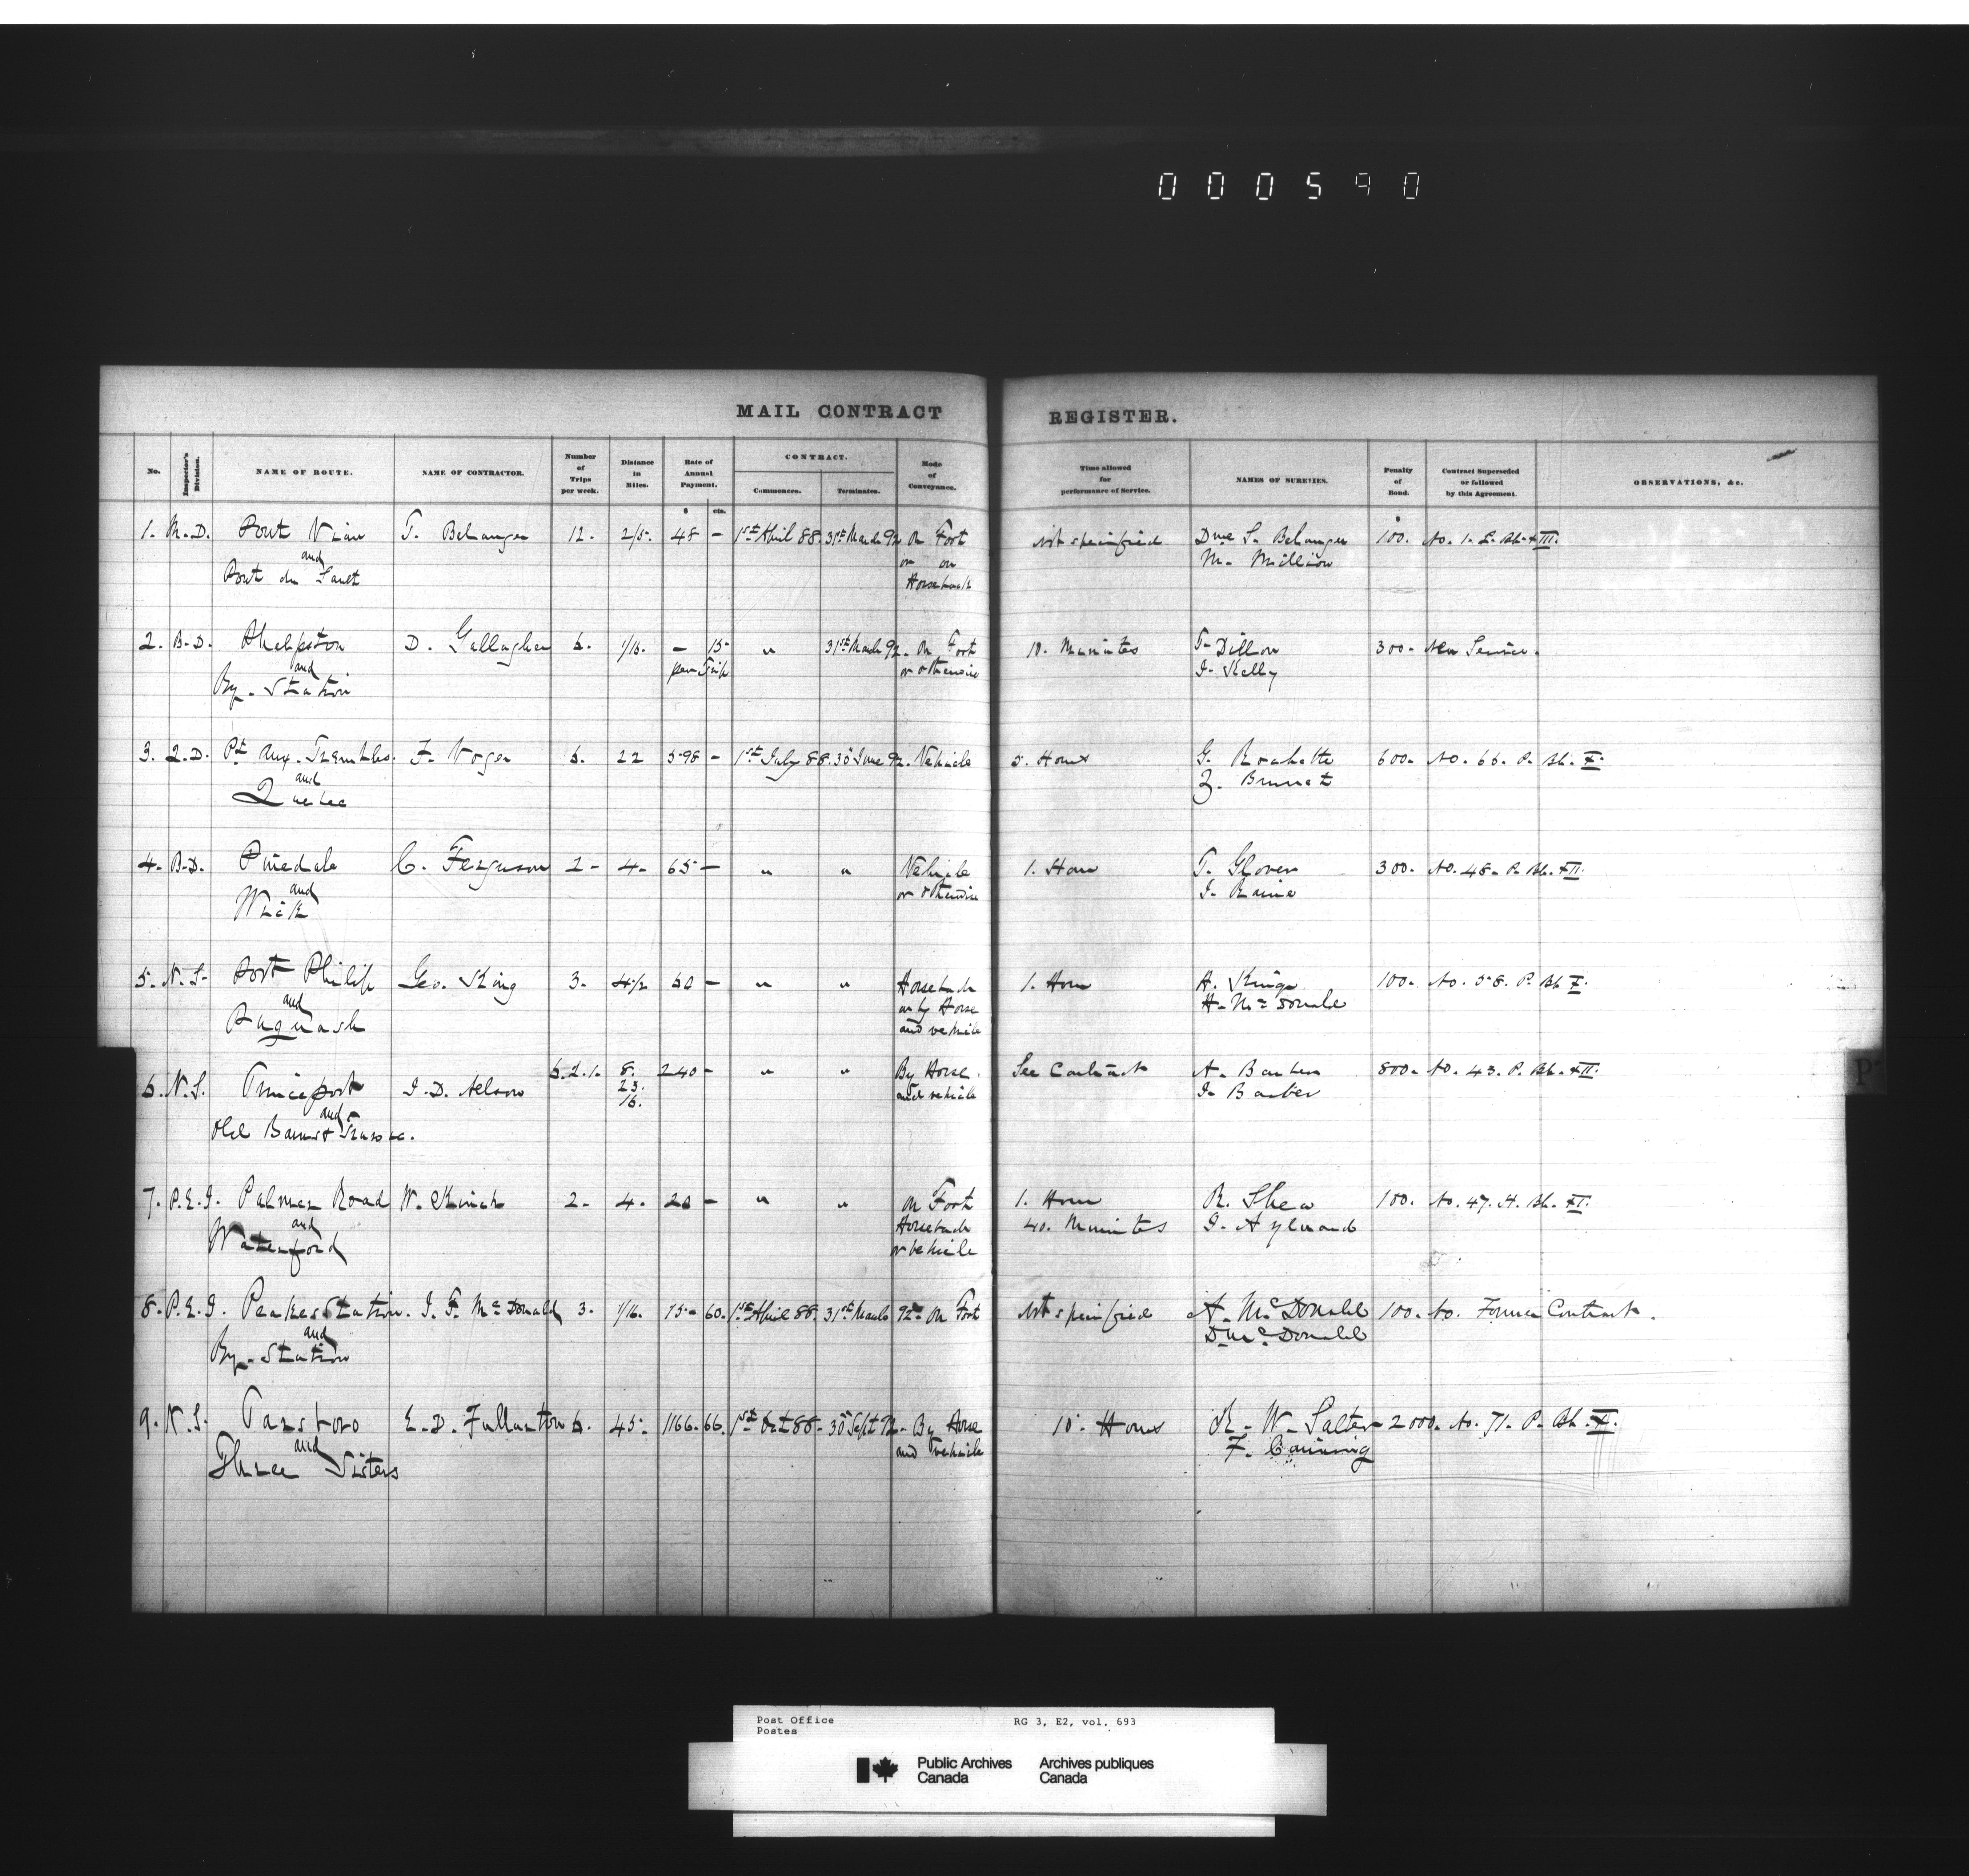 000590
MAIL CONTRACT REGISTER.
No. Inspector's Division. NAME OF ROUTE. NAME OF CONTRACTOR. Number of Trips per week. Distance in Miles. Rate of Annual Payment. CONTRACT. Commences. Terminates. Mode of Conveyance. Time allowed for performance of Service. NAMES OF SURETIES. Penalty of Bond. Contract Superseded or followed by this Agreement. OBSERVATIONS, &c.
$ cts.
1. M.D. Pont Viau T. Belanger 12. 2/5. 48 – 1st April 88. 31st March 92 On Foot Not specified Dme S. Belanger 100. No. 1. L. Bk. XIII.
and or on M. Million
Pont du Sault Horseback
2. B.D. Phelpston D. Gallagher 6. 1/16. – 15 " 31st March 92. On Foot 10. Minutes T. Dillon 300. New Service.
and per Trip or otherwise J. Kelly
Ry. Station
3. Q.D. Pte Aux. Trembles. F. Noger 6. 22 598 – 1st July 88. 30 June 92. Vehicle 5. Hours G. Rochette 600. No. 66. P. Bk. X.
and Z. Brunet
Quebec
4. B.D. Pinedale C. Ferguson 2 – 4. 65 – " " Vehicle 1. Hour T. Glover 300. No. 48. P. Bk. XII.
and or otherwise J. Raine
Wick
5. N.S. Port Philip Geo. King 3. 4½ 60 – " " Horseback 1. Hour A. King 100. No. 58. P. Bk X.
and or by Horse H. McDonald
Pugwash and vehicle
6. N.S. Princeport J.D. Nelson 6.2.1. 8. 240 – " " By Horse See Contract A. Barber 800. No. 43. P. Bk. XII.
and 23. and vehicle J. Barber
Old Barns & Truro &c. 16.
7. P.E.I. Palmer Road W. Kinch 2. 4. 20 – " " On Foot 1. Hour R. Shea 100. No. 47. H. Bk. XI.
and Horseback 40. Minutes J. Aylward
Waterford or vehicle
8. P.E.I. Peakes Station. J. F. McDonald 3. 1/16. 15 60. 1st April 88. 31st March 92 On Foot Not specified A. McDonald 100. No. Former Contract.
and D. McDonald
Ry. Station
9. N.S. Parrsboro E.D. Fullerton 6. 45. 1166. 66. 1st Oct 88. 30 Sept 92. By Horse 10. Hours R. W. Salter 2000. No. 71. P. Bk. X.
and and vehicle F. Canning
Three Sisters
P
Post Office RG 3, E2, vol. 693
Postes
Public Archives Archives publiques
Canada Canada